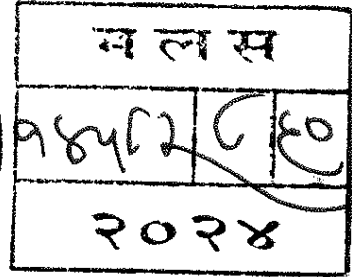 न ल स
१४५८२ ८ ६०
२०२४